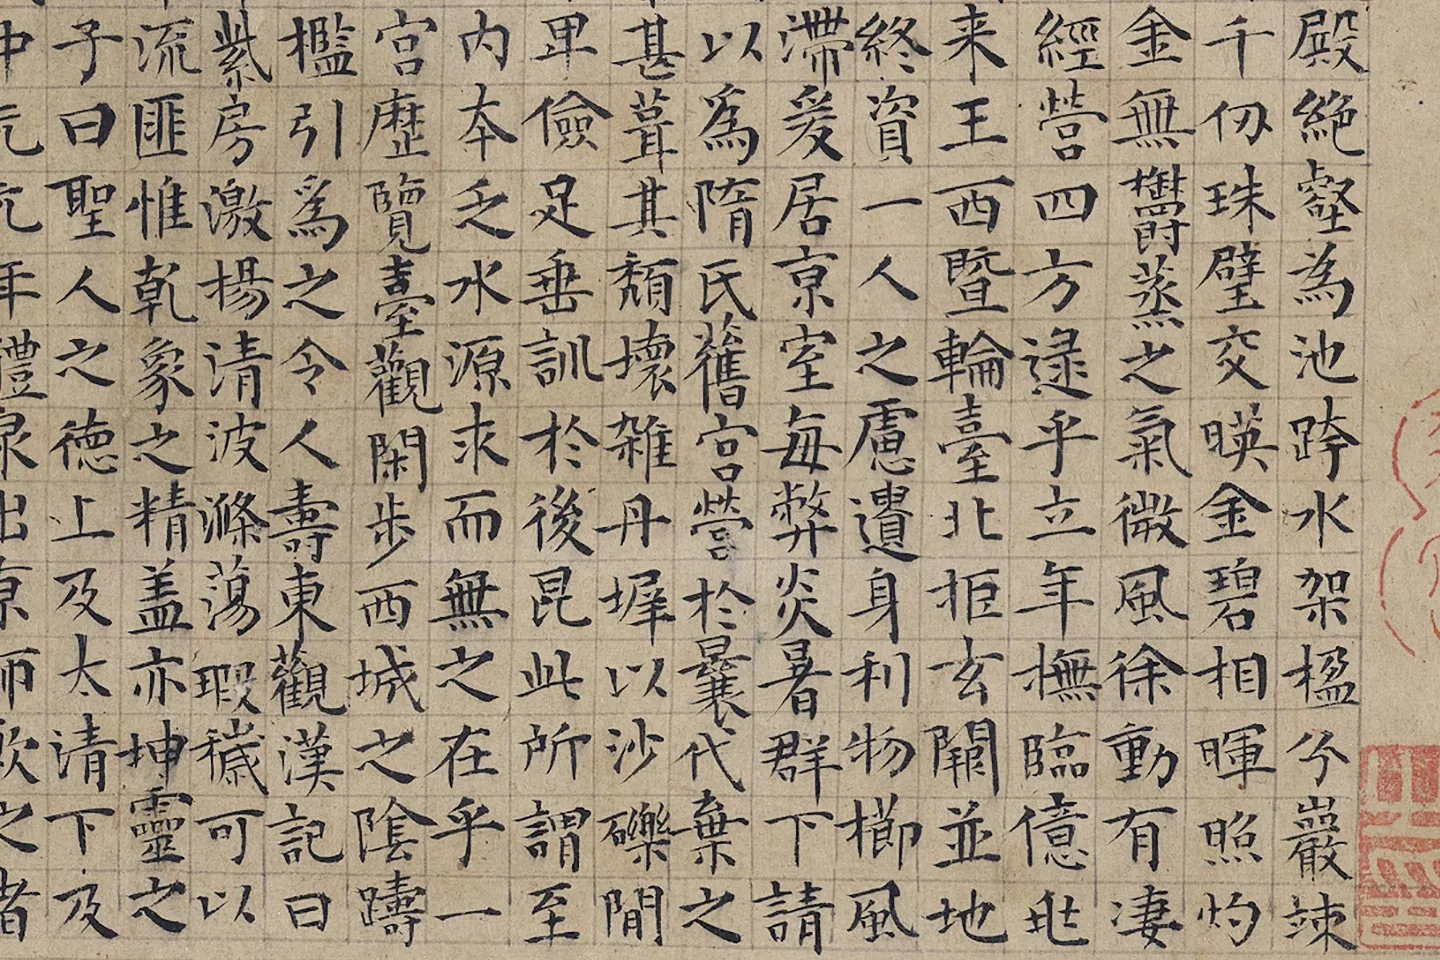 殿絶壑為池跨水架楹兮巖竦
千仞珠璧交暎金碧相暉照灼
金無欝蒸之氣微風徐動有凄
經營四方逯乎立年撫臨億兆
来王西暨輪臺北拒玄闕並地
終資一人之慮遺身利物櫛風
滯爰居京室每弊炎暑群下請
以為隋氏舊宮營於曩代棄之
甚葺其頹壞雜丹墀以沙礫間
卑儉足垂訓於後昆此所謂至
内本乏水源求而無之在乎一
宮歷覽臺觀閑步西城之陰躊
檻引為之令人壽東觀漢記曰
紫房激揚清波滌蕩瑕穢可以
流匪惟乾象之精盖亦坤靈之
子曰聖人之德上及太清下及
中元元年醴泉出京師飲之者